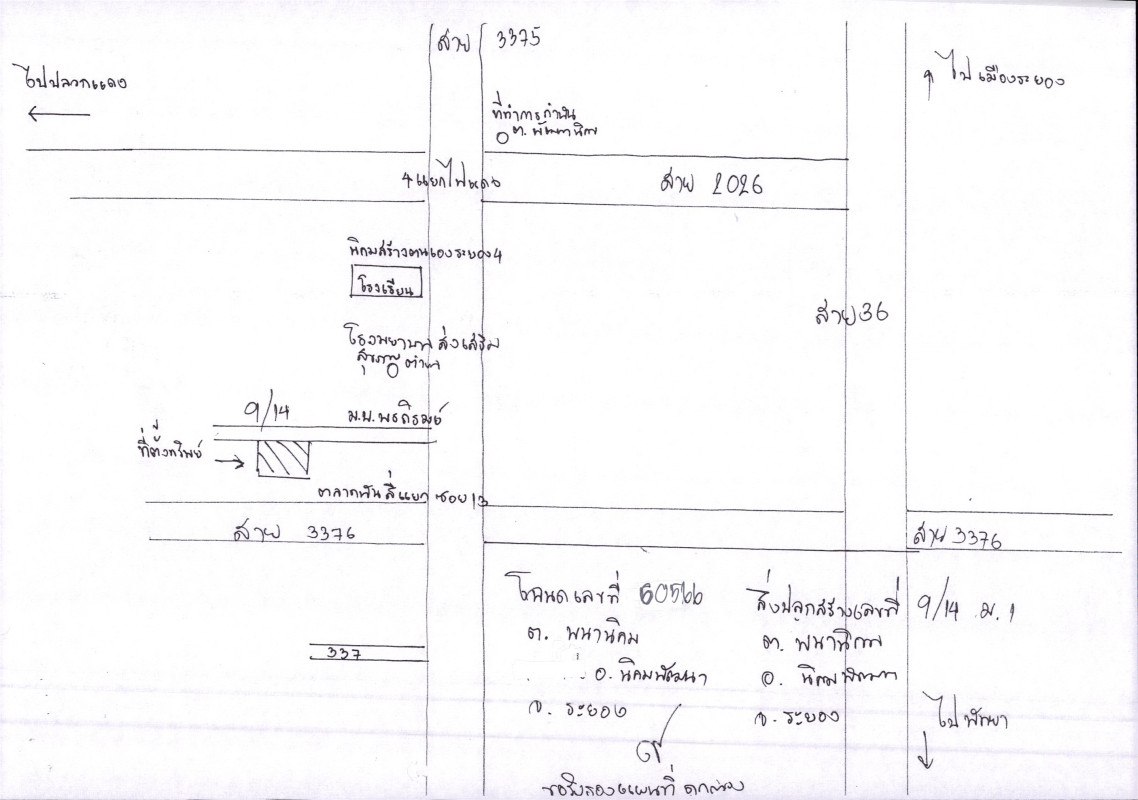 สาย 3375
ไปปลวกแดง
↑ ไปเมืองระยอง
←
ที่ทำการกำนัน
ต. พัฒนานิคม
4 แยกไฟแดง
สาย 2026
นิคมสร้างตนเองระยอง4
โรงเรียน
สาย 36
โรงพยาบาลส่งเสริม
สุขภาพตำบล
9/14
ม.บ. พรภิรมย์
ที่ตั้งทรัพย์ →
ตลาดนัดสี่แยก ซอย 13
สาย 3376
สาย 3376
โฉนดเลขที่ 60566
ต. พนานิคม
อ. นิคมพัฒนา
จ. ระยอง
สิ่งปลูกสร้างเลขที่ 9/14 ม.1
ต. พนานิคม
อ. นิคมพัฒนา
จ. ระยอง
337
ไปพัทยา
↓
ขอรับรองแผนที่ถูกต้อง